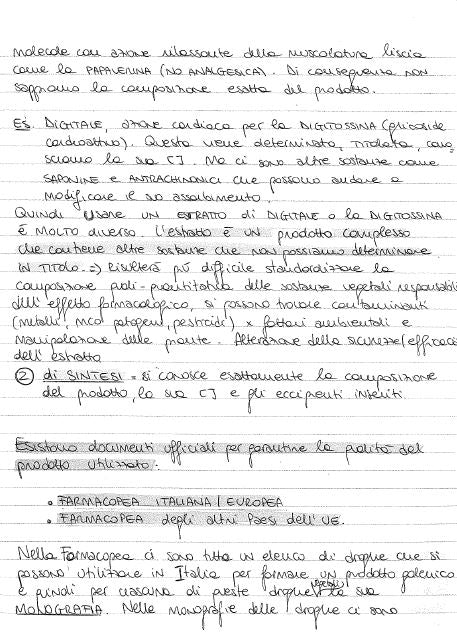 molecole con azione rilassante della muscolatura liscia
come la PAPAVERINA (NO ANALGESICA). Di conseguenza NON
sappiamo la composizione esatta del prodotto.
Es. DIGITALE, azione cardiaca per la DIGITOSSINA (glicoside
cardioattivo). Questa viene determinata, TITOLATA, cono_
sciamo la sua C]. Ma ci sono altre sostanze come
SAPONINE e ANTRACHINONICI che possono andare a
modificare il suo assorbimento.
Quindi USARE UN ESTRATTO di DIGITALE o la DIGITOSSINA
è MOLTO diverso. L'estratto è un prodotto complesso
che contiene altre sostanze che non possiamo determinare
IN TITOLO. => Risulterà più difficile standardizzare la
composizione quali-quantitativa delle sostanze vegetali responsabili
dell'effetto farmacologico, si possono trovare contaminanti
(metalli, mico patogeni, pesticidi) x fattori ambientali e
manipolazione delle piante. Alterazione della sicurezza/efficacia
dell'estratto
② di SINTESI = si conosce esattamente la composizione
del prodotto, la sua C] e gli eccipienti inseriti.
Esistono documenti ufficiali per garantire la qualità del
prodotto utilizzato:
• FARMACOPEA ITALIANA / EUROPEA
• FARMACOPEA degli altri Paesi dell'UE.
Nella Farmacopea ci sono tutta un elenco di droghe che si
possono utilizzare in Italia per formare un prodotto galenico
e quindi per ciascuna di queste droghe vegetali la sua
MONOGRAFIA. Nelle monografie delle droghe ci sono